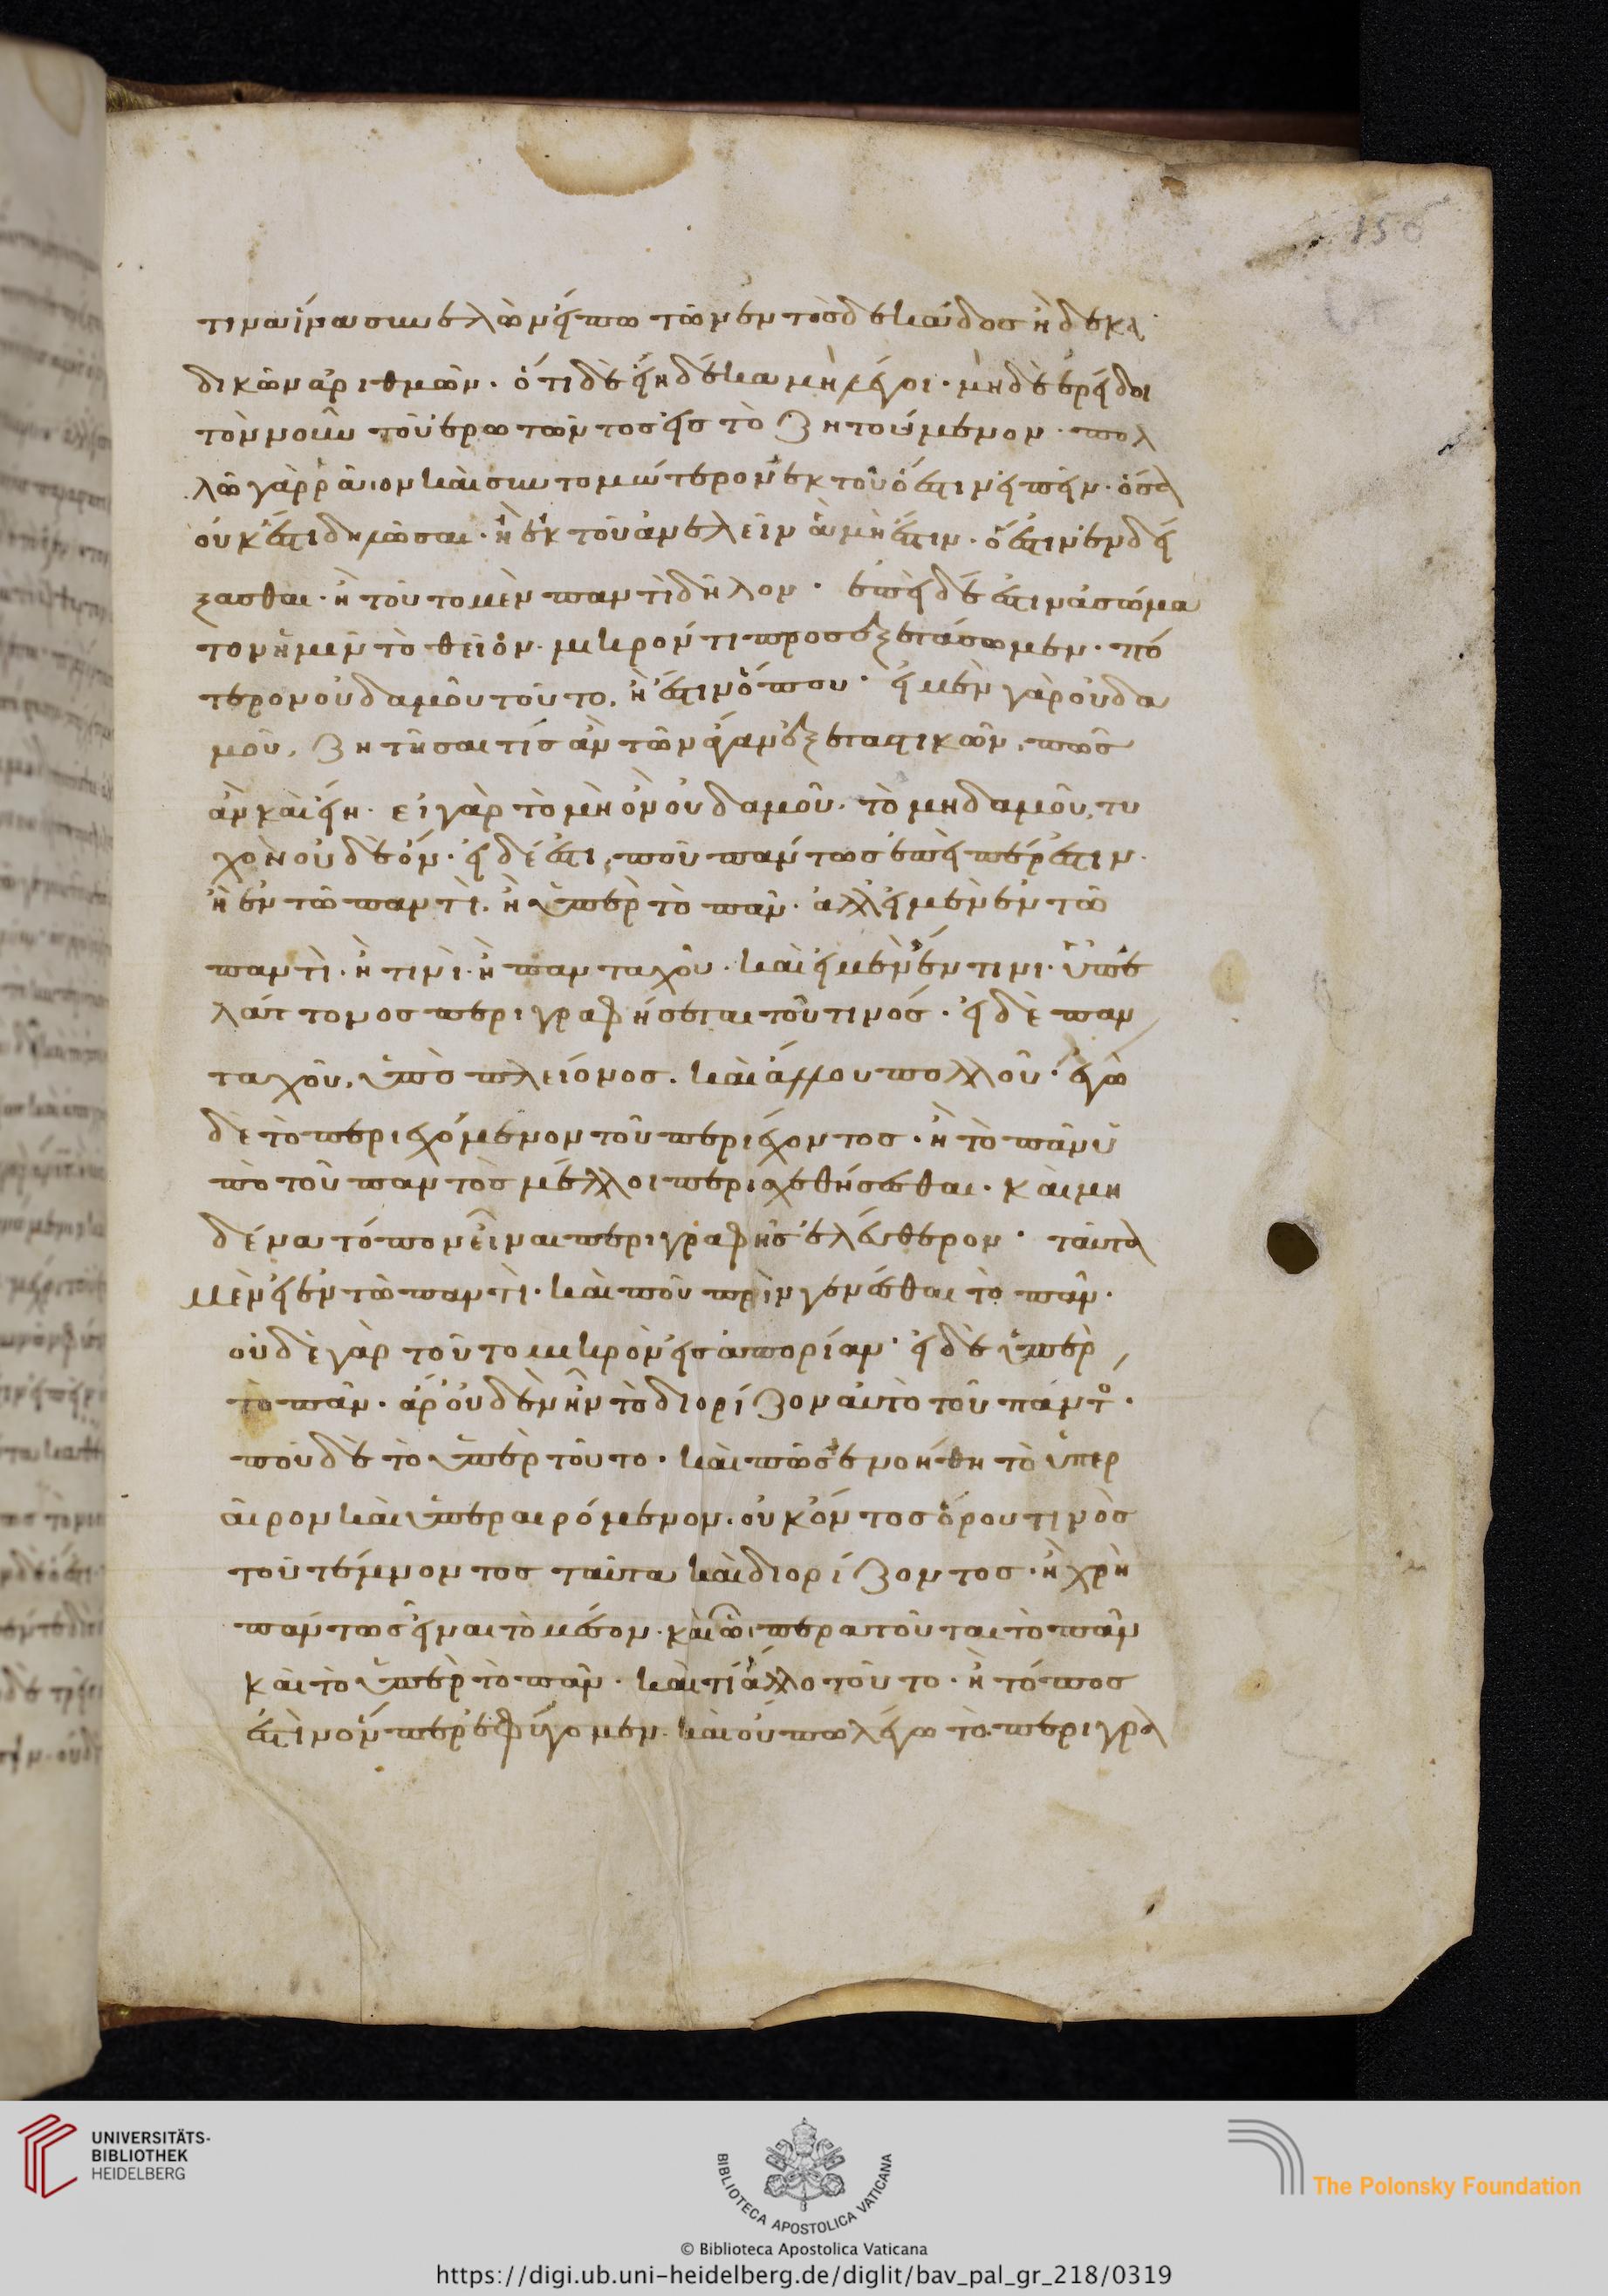 156
τιναἵνα συνελὼν εἴπω τῶν ἐντὸς δεκάδος ἢ δεκα
δικῶν ἀριθμῶν· ὅτι δὲ εἴη δέκα μὴ λέγοι· μηδὲ ἐρείδοι
τὸν νοῦν τοῦ ἐρωτῶντος εἰς τὸ ζητούμενον· πολ
λῶ γὰρ ῥᾶιον καὶ συντομώτερον ἐκ τοῦ ὅ ἐστιν εἰπεῖν· ὅσα
οὐκ ἔστι δηλῶσαι· ἢ ἐκ τοῦ ἀνελεῖν ἃ μὴ ἔστιν· ὅ ἐστιν ἐνδεί
ξασθαι· ἢ τοῦτο μὲν παντὶ δῆλον· ἐπεὶ δέ ἐστιν ἀσώμα
τον ἡμῖν τὸ θεῖον· μικρόν τι προσεξετάσωμεν· πό
τερον οὐδαμοῦ τοῦτο, ἢ ἔστιν ὅπου· εἰ μὲν γὰρ οὐδα
μοῦ, ζητῆσαι τίς ἂν τῶν ἄγαν ἐξεταστικῶν, πῶς
ἂν καὶ εἴη· εἰ γὰρ τὸ μὴ ὂν οὐδαμοῦ· τὸ μηδαμοῦ, τυ
χὸν οὐδὲ ὄν· εἰ δέ ἐστι, που πάντως ἐπείπέρ ἐστιν·
ἢ ἐν τῶ παντὶ· ἢ ὑπὲρ τὸ πᾶν· ἀλλ εἰ μὲν ἐν τῶ
παντὶ· ἤ τινὶ· ἢ πανταχοῦ· καὶ εἰ μὲν ἔν τινι· ὑπ ἐ
λάττονος περιγραφήσεται τοῦ τινός· εἰ δὲ παν
ταχοῦ, ὑπὸ πλείονος· καὶ ἄλλου πολλοῦ· λέγω
δὲ τὸ περιεχόμενον τοῦ περιέχοντος· εἰ τὸ πᾶν ὑ
πὸ τοῦ παντὸς μέλλοι περισχεθήσεσθαι· καὶ μη
δένα τόπον εἶναι περιγραφῆς ἐλεύθερον· ταῦτα
μὲν εἰ ἐν τῶ παντὶ· καὶ ποῦ πρὶν γενέσθαι τὸ πᾶν·
οὐδὲ γὰρ τοῦτο μικρὸν εἰς ἀπορίαν· εἰ δὲ ὑπὲρ
τὸ πᾶν· ἆρ οὐδὲν ἦν τὸ διορίζον αὐτὸ τοῦ παντό·
ποῦ δὲ τὸ ὑπὲρ τοῦτο· καὶ πῶς ἐνοήθη τὸ ὑπερ
αῖρον καὶ ὑπεραιρόμενον· οὐκ ὄντος ὅρου τινὸς
τοῦ τέμνοντος ταῦτα καὶ διορίζοντος· ἢ χρὴ
πάντως εἶναι τὸ μέσον· καὶ ὧι περατοῦται τὸ πᾶν
καὶ τὸ ὑπὲρ τὸ πᾶν· καὶ τί ἄλλο τοῦτο· ἢ τόπος
ἐστὶν ὅν περ ἐφύγομεν· καὶ οὔπω λέγω τὸ περιγρα
UNIVERSITÄTS-
BIBLIOTHEK
HEIDELBERG
BIBLIOTECA APOSTOLICA VATICANA
The Polonsky Foundation
© Biblioteca Apostolica Vaticana
https://digi.ub.uni-heidelberg.de/diglit/bav_pal_gr_218/0319